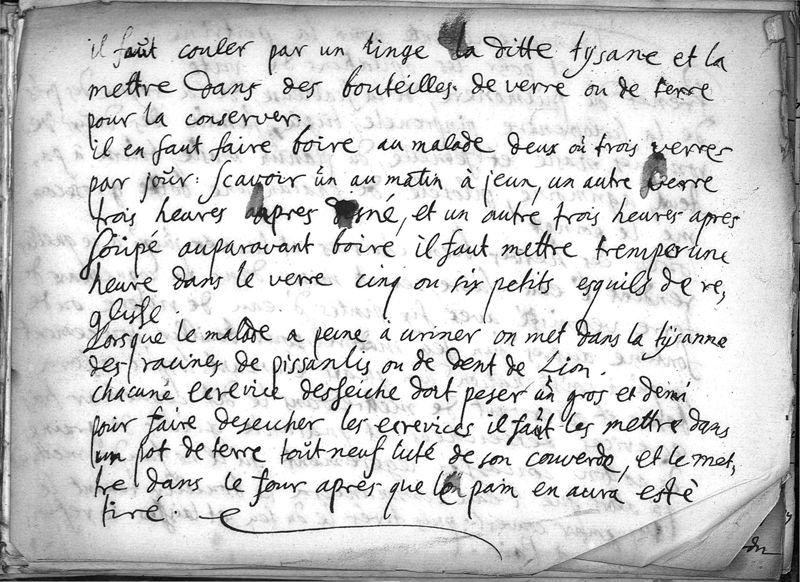 il faut couler par un linge la ditte tysane et la
mettre dans des bouteilles de verre ou de terre
pour la conserver.
il en faut faire boire au malade deux ou trois verres
par jour: scavoir un au matin à jeun, un autre verre
trois heures apres disné, et un autre trois heures apres
soupé auparavant boire il faut mettre tremper une
heure dans le verre cinq ou six petits esquils de re,
glisse.
Lorsque le malade a peine à uriner on met dans la tysanne
des racines de pissanlis ou de dent de Lion.
chacune ecrevice desseiche doit peser un gros et demi
pour faire deseicher les ecrevices il faut les mettre dans
un pot de terre tout neuf luté de son couverde, et le met,
tre dans le four apres que lon pain en aura esté
tiré.